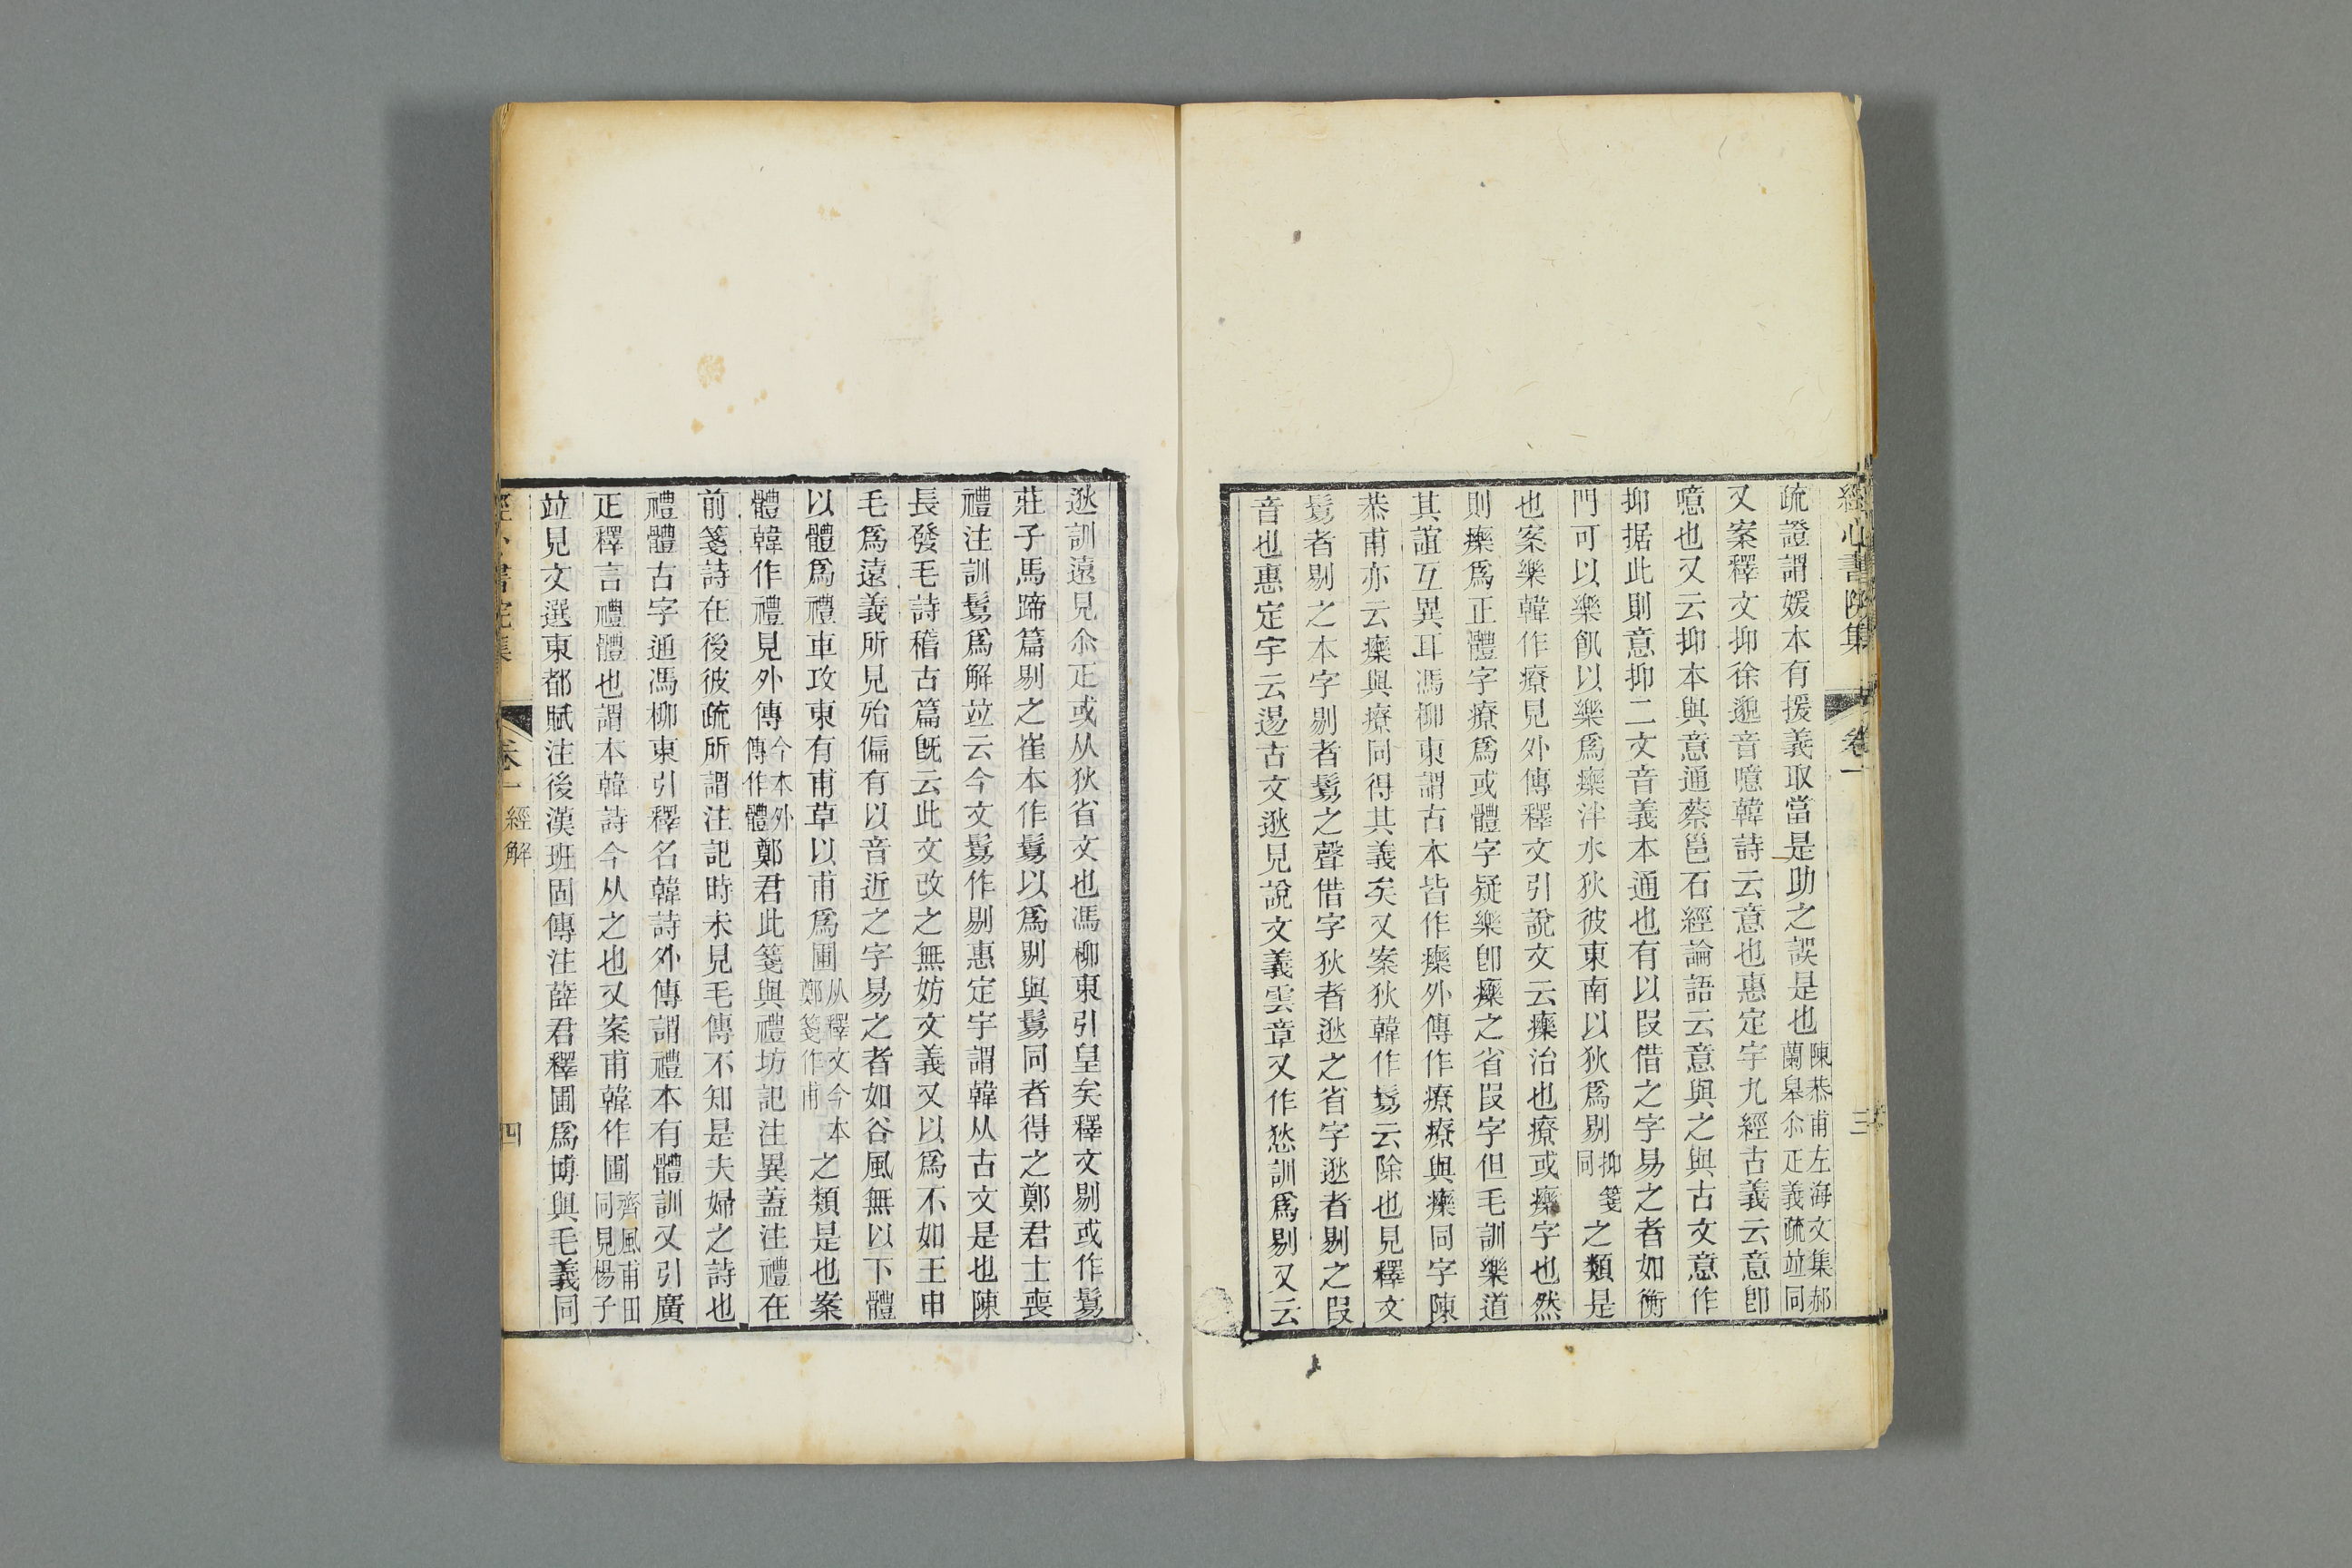 經心書院集 卷一 三
疏證謂媛本有援義取當是助之誤是也陳恭甫左海文集郝蘭皋尒正義疏竝同
又案釋文抑徐邈音噫韓詩云意也惠定宇九經古義云意卽
噫也又云抑本與意通蔡邕石經論語云意與之與古文意作
抑据此則意抑二文音義本通也有以叚借之字易之者如衡
門可以樂飢以樂爲𤻲泮水狄彼東南以狄爲剔抑箋同之類是
也案樂韓作療見外傳釋文引說文云𤻲治也療或𤻲字也然
則𤻲爲正體字療爲或體字疑樂卽𤻲之省叚字但毛訓樂道
其誼互異耳馮柳東謂古本皆作𤻲外傳作療療與𤻲同字陳
恭甫亦云𤻲與療同得其義矣又案狄韓作鬄云除也見釋文
鬄者剔之本字剔者鬄之聲借字狄者逖之省字逖者剔之叚
音也惠定宇云逷古文逖見說文義雲章又作悐訓爲剔又云
逖訓遠見尒正或从狄省文也馮柳東引皇矣釋文剔或作鬄
莊子馬蹄篇剔之崔本作鬄以爲剔與鬄同者得之鄭君士喪
禮注訓鬄爲解竝云今文鬄作剔惠定宇謂韓从古文是也陳
長發毛詩稽古篇旣云此文改之無妨文義又以爲不如王申
毛爲遠義所見殆偏有以音近之字易之者如谷風無以下體
以體爲禮車攻東有甫草以甫爲圃从釋文今本鄭箋作甫之類是也案
體韓作禮見外傳今本外傳作體鄭君此箋與禮坊記注異蓋注禮在
前箋詩在後彼疏所謂注記時未見毛傳不知是夫婦之詩也
禮體古字通馮柳東引釋名韓詩外傳謂禮本有體訓又引廣
正釋言禮體也謂本韓詩今从之也又案甫韓作圃齊風甫田同見楊子
竝見文選東都賦注後漢班固傳注薛君釋圃爲博與毛義同
經心書院集 卷一 經解 四